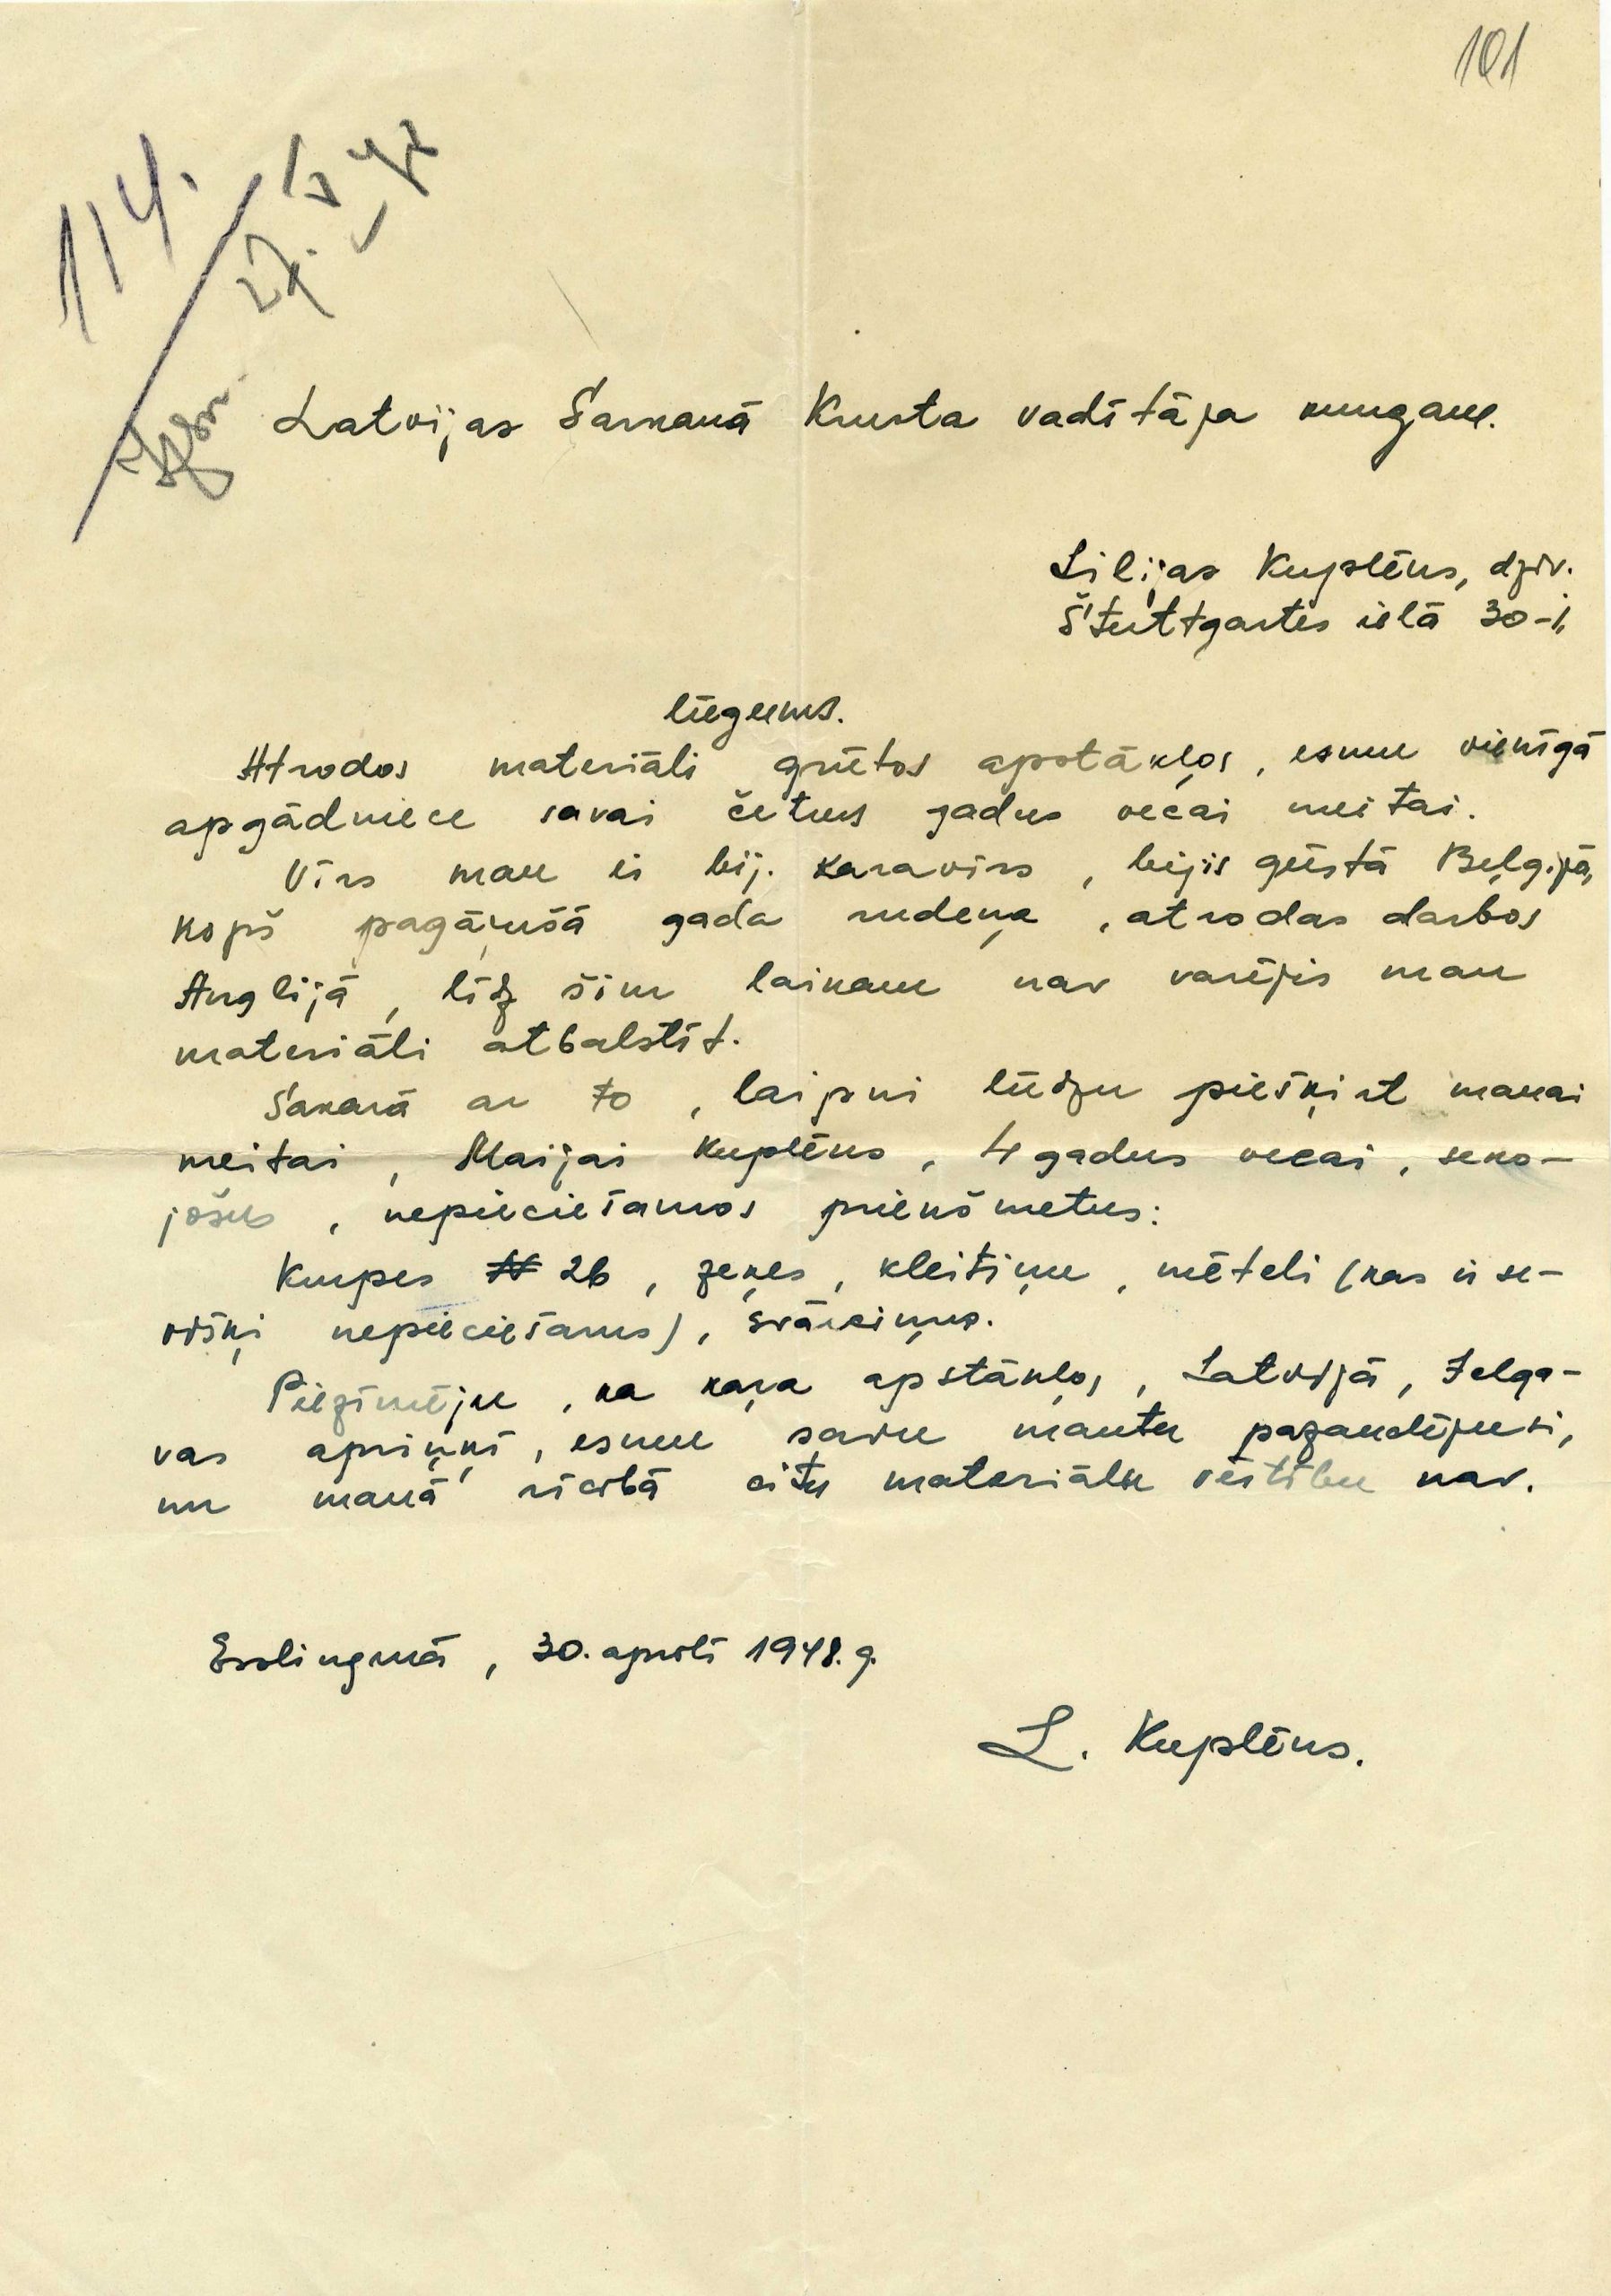 101
114.
27.
Latvijas Sarkanā Krusta vadītāja kungam.
Lilijas Kuplēns, dzīv.
Štuttgartes ielā 30-I,
lūgums.
Atrodos materiāli grūtos apstākļos, esmu vienīgā
apgādniece savai četrus gadus vecai meitai.
Vīrs man ir bij. karavīrs, bijis gūstā Beļģijā,
kopš pagājušā gada rudeņa, atrodas darbos
Anglijā, līdz šim laikam nav varējis man
materiāli atbalstīt.
Sakarā ar to, laipni lūdzu piešķirt manai
meitai, Maijai Kuplēns, 4 gadus vecai, seko-
jošus, nepieciešamos priekšmetus:
Kurpes N 26, zeķes, kleitiņu, mēteli (kas ir se-
višķi nepieciešams), svārciņus.
Piezīmēju, ka kara apstākļos, Latvijā, Jelga-
vas apriņķī, esmu savu mantu pazaudējusi,
un manā rīcībā citu materiālu vērtību nav.
Esslingenā, 30. aprīlī 1948. g.
L. Kuplēns.